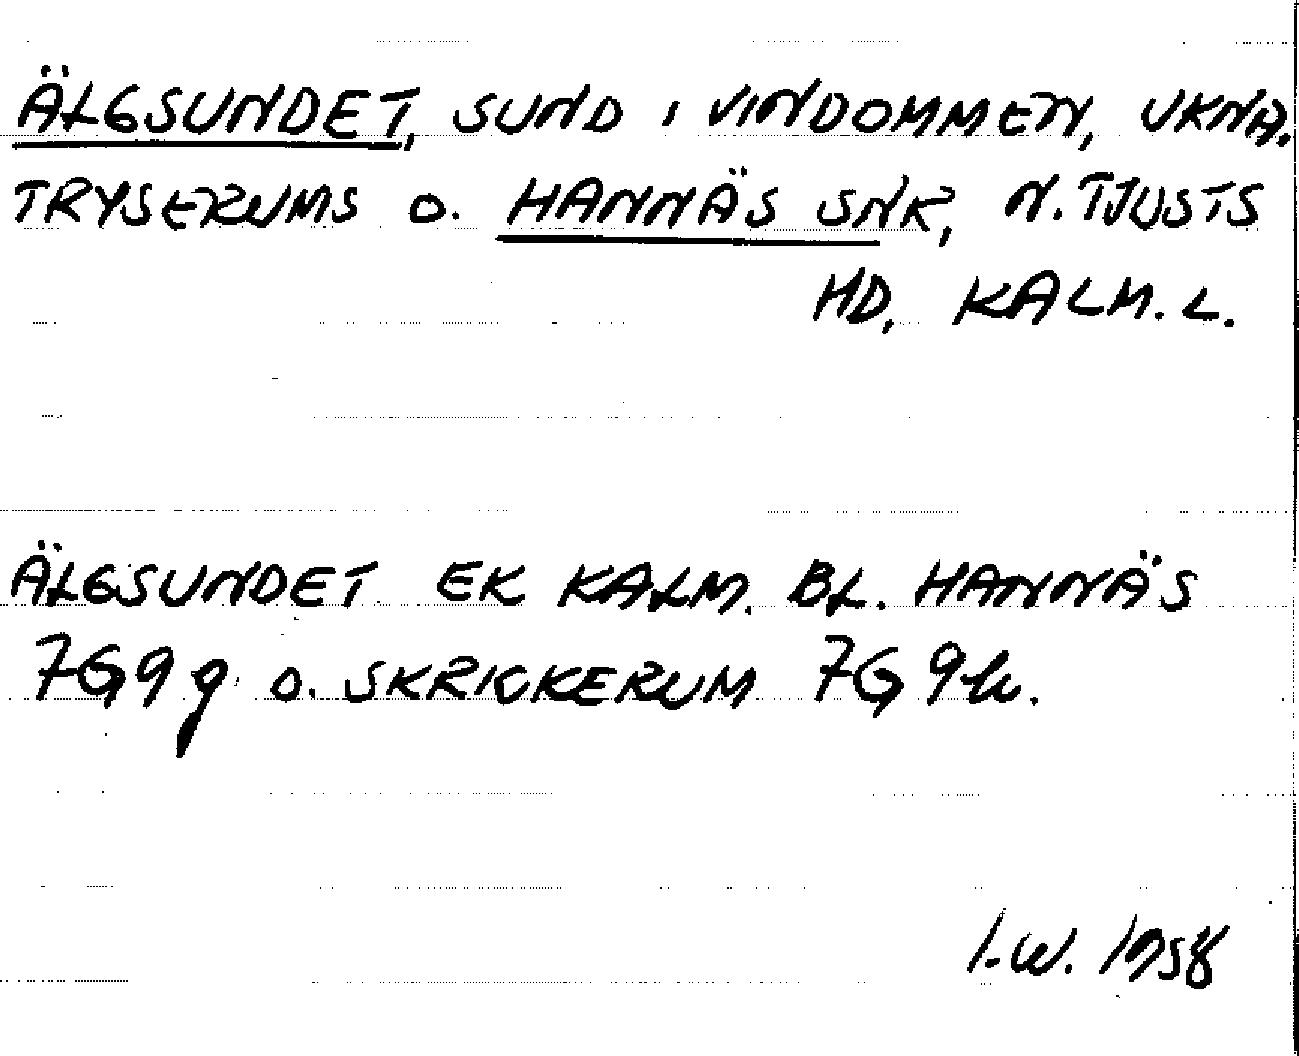 ÄLGSUNDET, SUND I VINDOMMEN, UKNA.
TRYSERUMS O. HANNÄS SNR, N. TJUSTS
HD, KALM. L.
ÄLGSUNDET EK KALM. BL. HANNÄS
7G9g O. SKRICKERUM 7G9h.
I.W. 1958